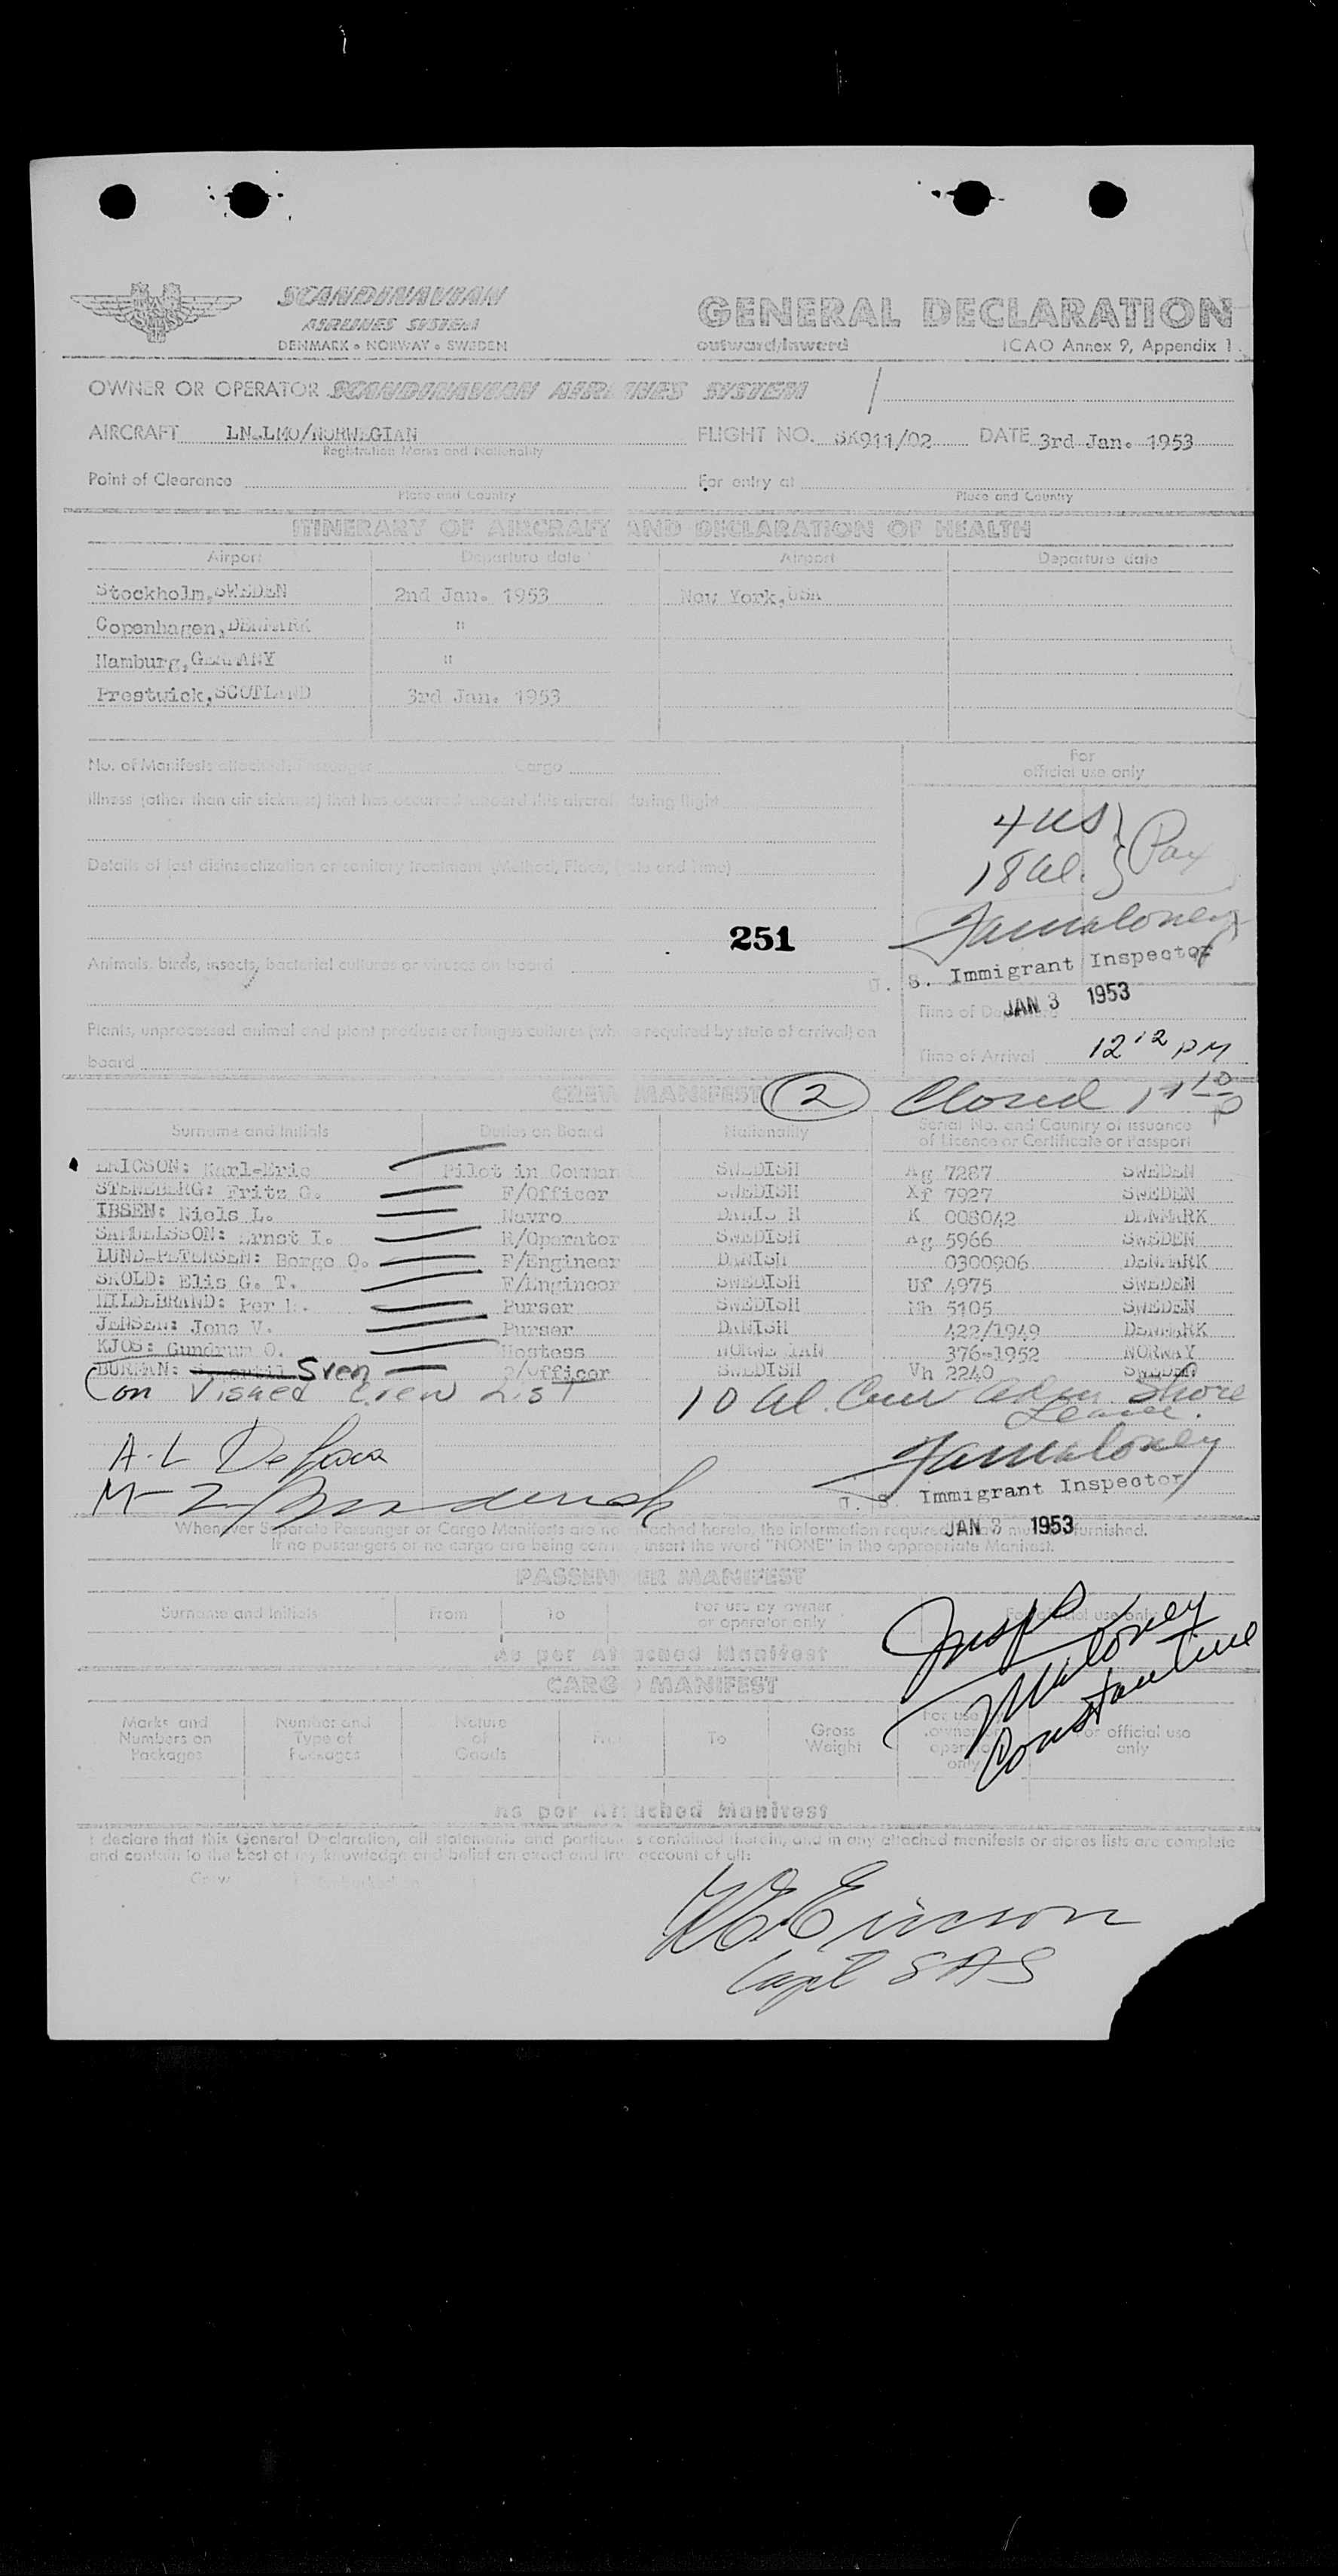 SCANDINAVIAN
AIRLINES SYSTEM
DENMARK • NORWAY • SWEDEN
GENERAL DECLARATION
outward/inward
ICAO Annex 9, Appendix 1
OWNER OR OPERATOR SCANDINAVIAN AIRLINES SYSTEM
AIRCRAFT LN-LMO/NORWEGIAN FLIGHT NO. SK911/02 DATE 3rd Jan. 1953
Registration Marks and Nationality
Point of Clearance For entry at
Place and Country Place and Country
ITINERARY OF AIRCRAFT AND DECLARATION OF HEALTH
Airport Departure date Airport Departure date
Stockholm, SWEDEN 2nd Jan. 1953 New York, USA
Copenhagen, DENMARK "
Hamburg, GERMANY "
Prestwick, SCOTLAND 3rd Jan. 1953
No. of Manifests attached: Passenger Cargo
For
official use only
Illness (other than air sickness) that has occurred aboard this aircraft during flight
4 US
18 Al. } Pax
Details of last disinsectization or sanitary treatment (Method, Place, Date and Time)
251
Animals, birds, insects, bacterial cultures or viruses on board
U. S. Immigrant Inspector
JAN 3 1953
Time of Departure
Plants, unprocessed animal and plant products or fungus cultures (where required by state of arrival) on
board
Time of Arrival 12 12 PM
CREW MANIFEST 2 Closed
Surname and Initials Duties on Board Nationality Serial No. and Country of issuance
of Licence or Certificate or Passport
ERICSON: Karl-Eric Pilot in Comman SWEDISH Ag 7287 SWEDEN
STENEBERG: Frits O. F/Officer SWEDISH Xf 7927 SWEDEN
IBSEN: Niels L. Navro DANISH K 008042 DENMARK
SAMUELSSON: Ernst I. R/Operator SWEDISH Ag 5966 SWEDEN
LUND-PETERSEN: Borge O. F/Engineer DANISH 0300906 DENMARK
SKOLD: Elis G. T. F/Engineer SWEDISH Uf 4975 SWEDEN
HILDEBRAND: Per Purser SWEDISH Mh 5105 SWEDEN
JENSEN: Jens V. Purser DANISH 422/1949 DENMARK
KJOS: Gundrun O. Hostess NORWEGIAN 376-1952 NORWAY
BURMAN: Sven 2/Officer SWEDISH Vh 2240 SWEDEN
on Visaed Crew List
10 Al. Crew Adm. Shore
Leave.
A-L
M-2
U. S. Immigrant Inspector
JAN 3 1953
Whenever Separate Passenger or Cargo Manifests are not attached hereto, the information required must be furnished.
If no passengers or no cargo are being carried, insert the word "NONE" in the appropriate Manifest.
PASSENGER MANIFEST
Surname and Initials From To For use by owner
or operator only For official use only
As per Attached Manifest
Insp
Maloney
Constantine
CARGO MANIFEST
Marks and
Numbers on
Packages
Number and
Type of
Packages
Nature
of
Goods
From
To
Gross
Weight
For use by
owner or
operator
only
For official use
only
As per Attached Manifest
I declare that this General Declaration, all statements and particulars contained therein, and in any attached manifests or stores lists are complete
and contain to the best of my knowledge and belief an exact and true account of all:
Crew
KE Ericson
Capt SAS